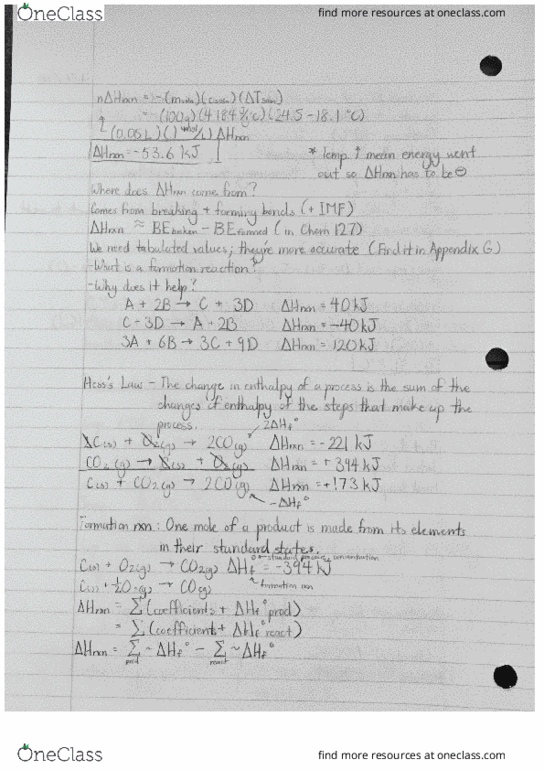 OneClass
find more resources at oneclass.com
nΔHrxn = -(mwater)(cwater)(ΔTsoln)
= -(100g)(4.184 J/g°C)(24.5-18.1°C)
(0.05L)(1 mol/L) ΔHrxn
ΔHrxn = -53.6 kJ
* Temp ↑ mean energy went
out so ΔHrxn has to be ⊖
Where does ΔHrxn come from?
Comes from breaking + forming bonds (+ IMF)
ΔHrxn ≈ BEbroken - BEformed (in Chem 127)
We need tabulated values; they're more accurate (Find it in Appendix G)
-What is a formation reaction?
-Why does it help?
A + 2B → C + 3D ΔHrxn = 40 kJ
C + 3D → A + 2B ΔHrxn = -40 kJ
3A + 6B → 3C + 9D ΔHrxn = 120 kJ
Hess's Law - The change in enthalpy of a process is the sum of the
changes of enthalpy of the steps that make up the
process.
2ΔHf°
2C(s) + O2(g) → 2CO(g) ΔHrxn = -221 kJ
CO2(g) → C(s) + O2(g) ΔHrxn = +394 kJ
C(s) + CO2(g) → 2CO(g) ΔHrxn = +173 kJ
-ΔHf°
Formation rxn: One mole of a product is made from its elements
in their standard states.
standard pressure, concentration
C(s) + O2(g) → CO2(g) ΔHf° = -394 kJ
C(s) + ½O2(g) → CO(g) formation rxn
ΔHrxn = Σ(coefficients + ΔHf° prod)
= Σ(coefficients + ΔHf° react)
ΔHrxn = Σprod ~ΔHf° - Σreact ~ΔHf°
OneClass
find more resources at oneclass.com